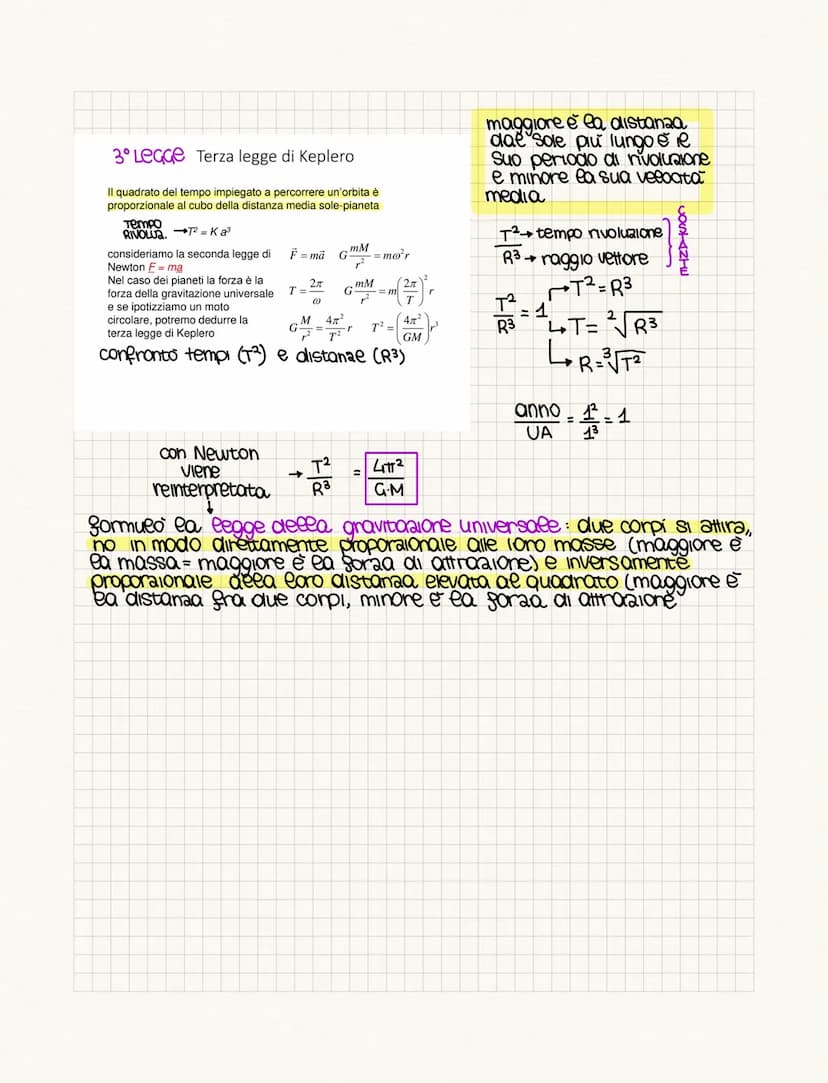 3° LEGGE Terza legge di Keplero
Il quadrato del tempo impiegato a percorrere un'orbita è
proporzionale al cubo della distanza media sole-pianeta
TEMPO
RIVOLUZ. →T² = K a³
consideriamo la seconda legge di
Newton F = ma
Nel caso dei pianeti la forza è la
forza della gravitazione universale
e se ipotizziamo un moto
circolare, potremo dedurre la
terza legge di Keplero
F = ma G mM/r² = mω²r
T = 2π/ω G mM/r² = m(2π/T)² r
G M/r² = 4π²/T² r T² = (4π²/GM) r³
confronto tempi (T²) e distanze (R³)
maggiore è la distanza
dal sole più lungo è il
suo periodo di rivoluzione
e minore la sua velocità
media
T² → tempo rivoluzione
R³ → raggio vettore
COSTANTE
T²/R³ = 1 → T² = R³
↳ T = ²√R³
↳ R = ³√T²
anno/UA = 1²/1³ = 1
con Newton
viene
reinterpretata
→ T²/R³ = 4π²/G·M
formulò la legge della gravitazione universale: due corpi si attira,,
no in modo direttamente proporzionale alle loro masse (maggiore è
la massa = maggiore è la forza di attrazione) e inversamente
proporzionale della loro distanza elevata al quadrato (maggiore è
la distanza fra due corpi, minore è la forza di attrazione